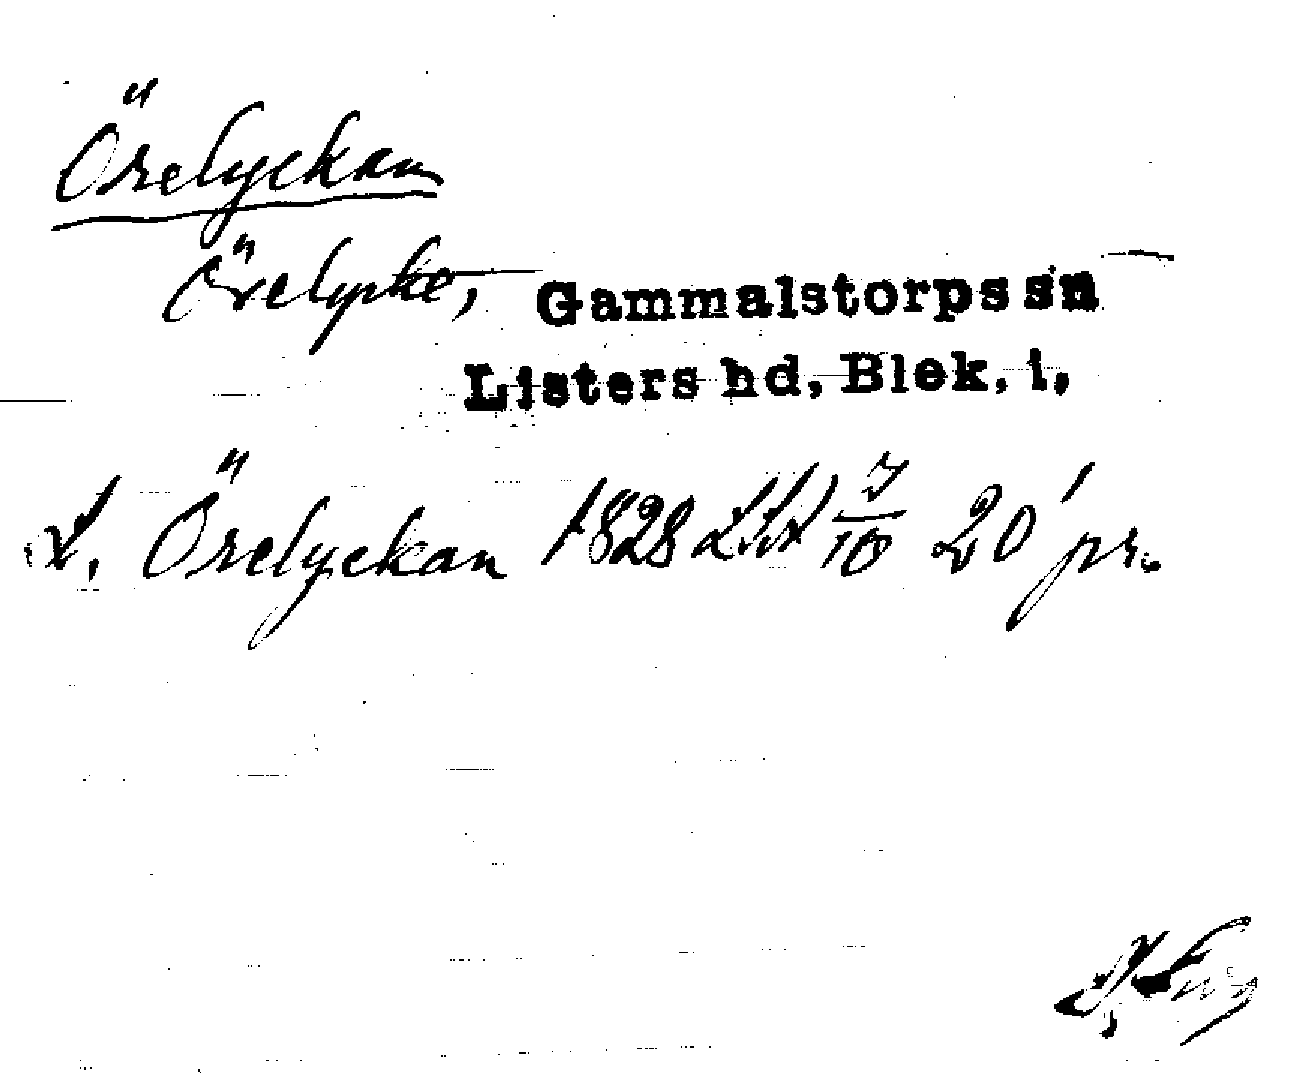 Örelyckan
Örelycke, Gammalstorps sn
Listers hd, Blek. l,
L. Örelyckan 1828 LSA 7/10 20' pr.